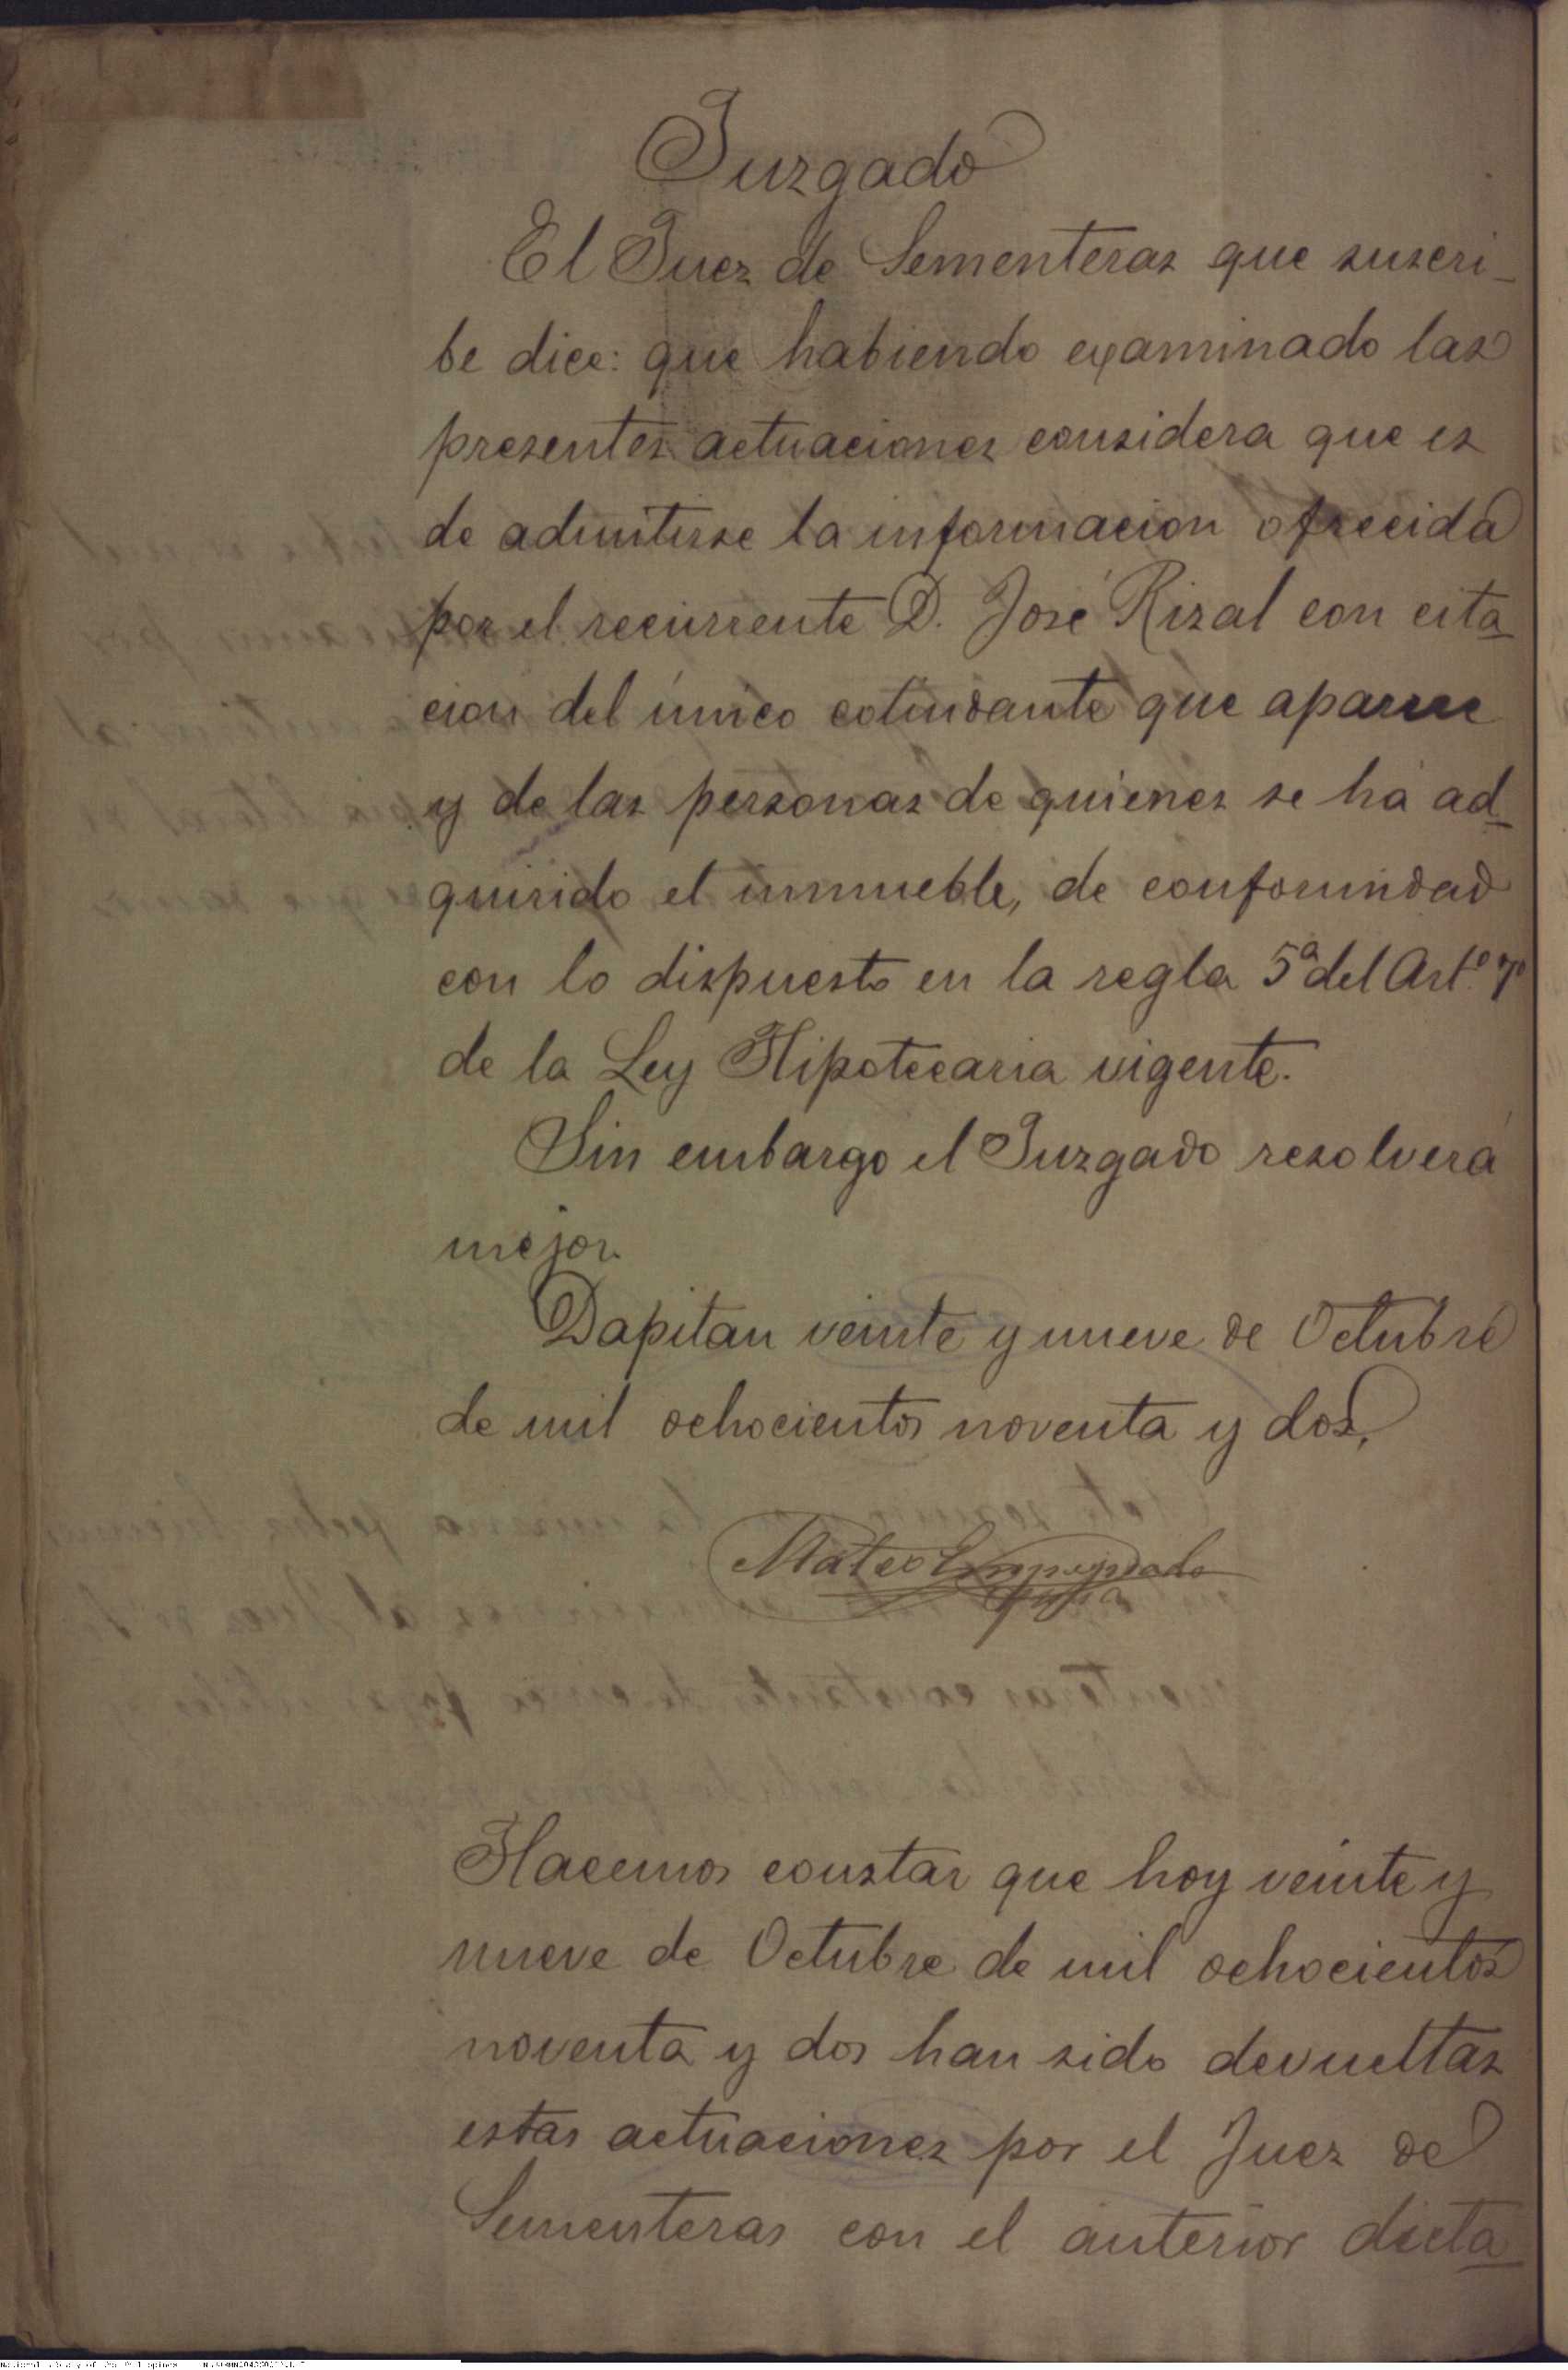 Juzgado
El Juez de Sementeras que suscri-
be dice: que habiendo examinado las
presentes actuaciones considera que es
de admitirse la informacion ofrecida
por el recurrente D. José Rizal con cita
cion del único colindante que aparece
y de las personas de quienes se há ad
quirido el inmueble, de conformidad
con lo dispuesto en la regla 5ª del Artº 7º
de la Ley Hipotecaria vigente.
Sin embargo el Juzgado resolverá
mejor.
Dapitan veinte y nueve de Octubre
de mil ochocientos noventa y dos.
Mateo
Hacemos constar que hoy veinte y
nueve de Octubre de mil ochocientos
noventa y dos han sido devueltas
estas actuaciones por el Juez de
Sementeras con el anterior dicta
National Library of the Philippines